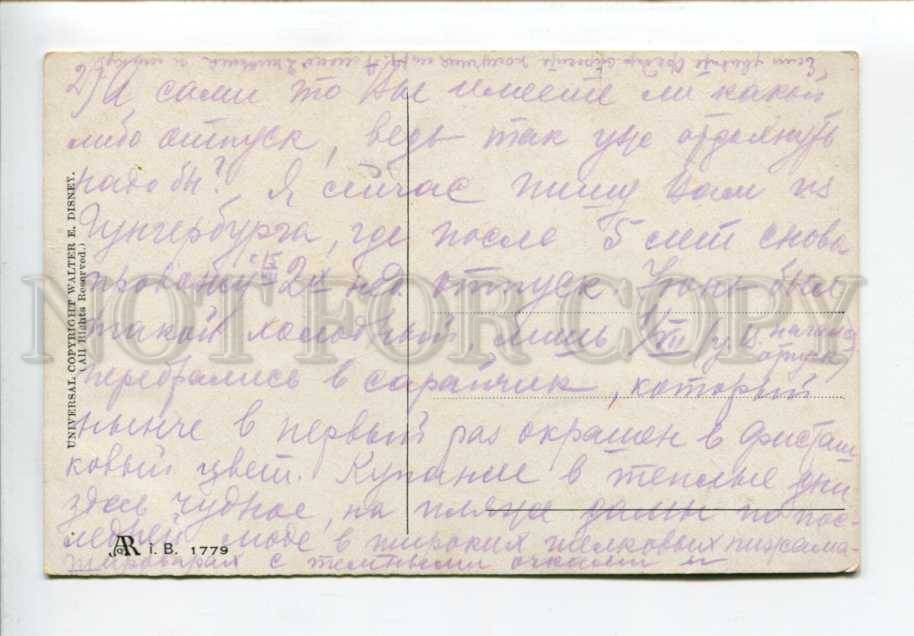 2) А сами то Вы имеете ли какой
либо отпуск, ведь так уже отдохнуть
надо бы? Я сейчас пишу Вам из
Гунгербурга, где после 5 лет снова
провожу 2х нед. отпуск. Июнь был
такой холодный, лишь
перебрались в сарайчик, который
нынче в первый раз окрашен в фисташ
ковый цвет. Купание в теплые дни
здесь чудное, на пляже дамы по пос-
ледней моде в широких шелковых пижама-
шароварах с темными очками и
UNIVERSAL COPYRIGHT WALTER E. DISNEY.
(All Rights Reserved.)
AR I.B. 1779
NOT FOR COPY